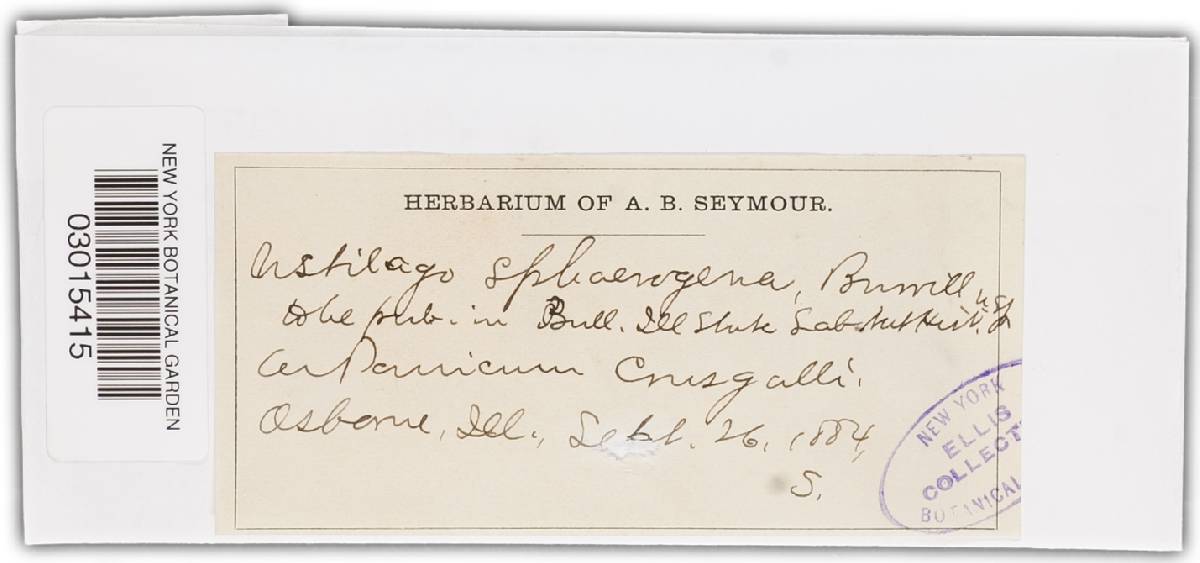 HERBARIUM OF A. B. SEYMOUR.
Ustilago sphaerogena, Burrill n.sp.
to be pub. in Bull. Ill State Lab. Nat Hist.
on Panicum Crusgalli.
Osborne, Ill., Sept. 26, 1884,
S.
NEW YORK BOTANICAL GARDEN
03015415
NEW YORK
ELLIS
COLLECT
BOTANICAL